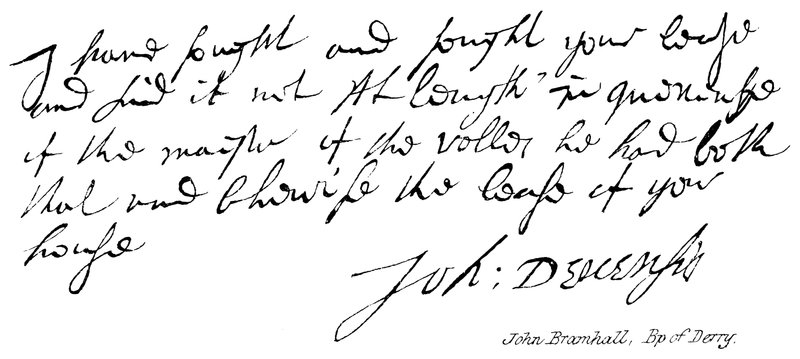 I have sought and sought your lease
and find it not At length in
of the maister of the rolles he had both
that and likewise the lease of your
house
Joh: Derensis
John Bramhall, Bp of Derry.